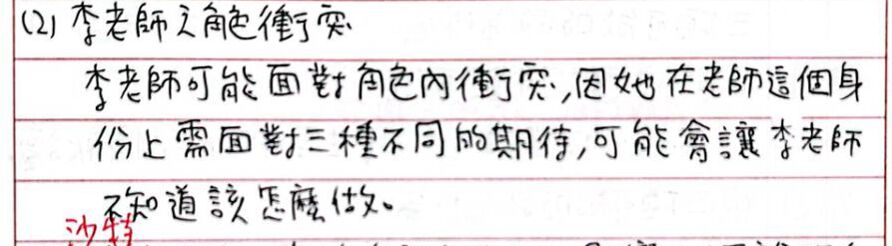 (2) 李老師之角色衝突
李老師可能面對角色內衝突,因她在老師這個身
份上需面對三種不同的期待,可能會讓李老師
不知道該怎麼做。
沙特